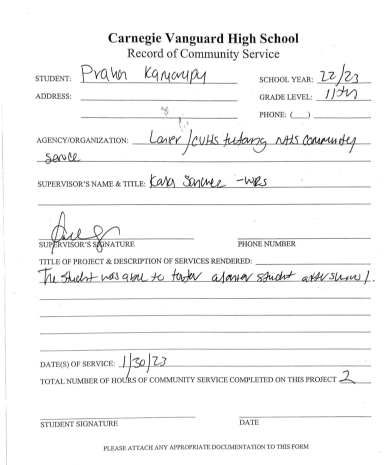 Carnegie Vanguard High School
Record of Community Service
STUDENT: Prahn SCHOOL YEAR: 22/23
ADDRESS: GRADE LEVEL: 11th
PHONE: ( )
AGENCY/ORGANIZATION: Lanier/CVHS tutoring NHS community
service
SUPERVISOR'S NAME & TITLE: Kara Sanchez -
SUPERVISOR'S SIGNATURE PHONE NUMBER
TITLE OF PROJECT & DESCRIPTION OF SERVICES RENDERED:
The student was able to a Lanier student after school.
DATE(S) OF SERVICE: 1/30/23
TOTAL NUMBER OF HOURS OF COMMUNITY SERVICE COMPLETED ON THIS PROJECT 2
STUDENT SIGNATURE DATE
PLEASE ATTACH ANY APPROPRIATE DOCUMENTATION TO THIS FORM